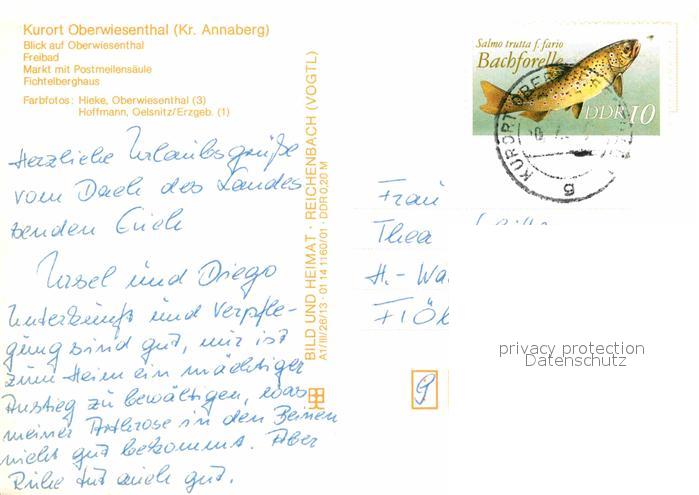 Kurort Oberwiesenthal (Kr. Annaberg)
Blick auf Oberwiesenthal
Freibad
Markt mit Postmeilensäule
Fichtelberghaus
Farbfotos: Hieke, Oberwiesenthal (3)
Hoffmann, Oelsnitz/Erzgeb. (1)
Herzliche Urlaubsgrüße
vom Dach des Landes
senden Euch
Ursel und Diego
Unterkunft und Verpfle-
gung sind gut, nur ist
zum Heim ein mächtiger
Anstieg zu bewältigen, was
meiner Arthrose in den Beinen
nicht gut bekommt. Aber
Ruhe tut auch gut.
BILD UND HEIMAT · REICHENBACH (VOGTL)
A1/III/26/13 · 01 14 1160/01 · DDR 0,20 M
Salmo trutta f. fario
Bachforelle
DDR 10
KURORT OBER
Frau
Thea
H.-Wa
Flöh
9
privacy protection
Datenschutz